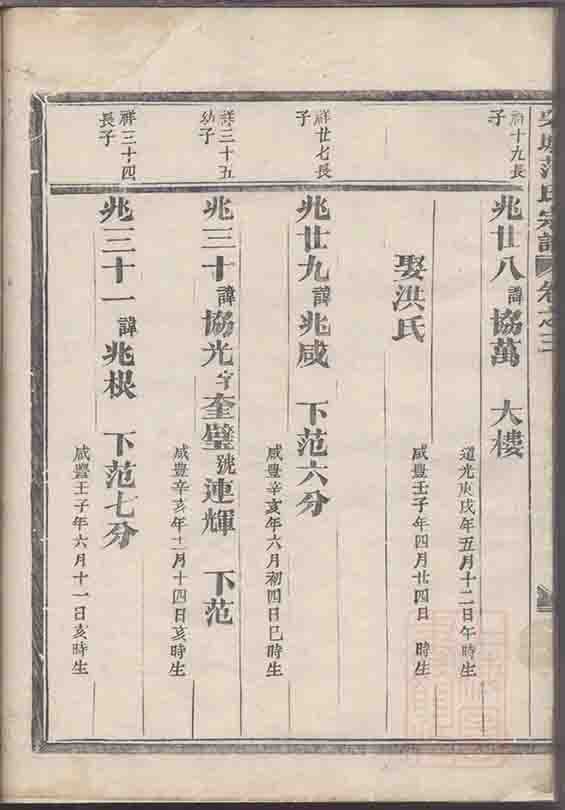 范氏宗譜 卷之三
祥十九長子
兆廿八諱協萬 大樓
道光庚戌年五月十二日午時生
娶洪氏
咸豐壬子年四月廿四日 時生
祥廿七長子
兆廿九諱兆咸 下范六分
咸豐辛亥年六月初四日巳時生
祥三十五幼子
兆三十諱協光字奎璧號連輝 下范
咸豐辛亥年十二月十四日亥時生
祥三十四長子
兆三十一諱兆根 下范七分
咸豐壬子年六月十一日亥時生